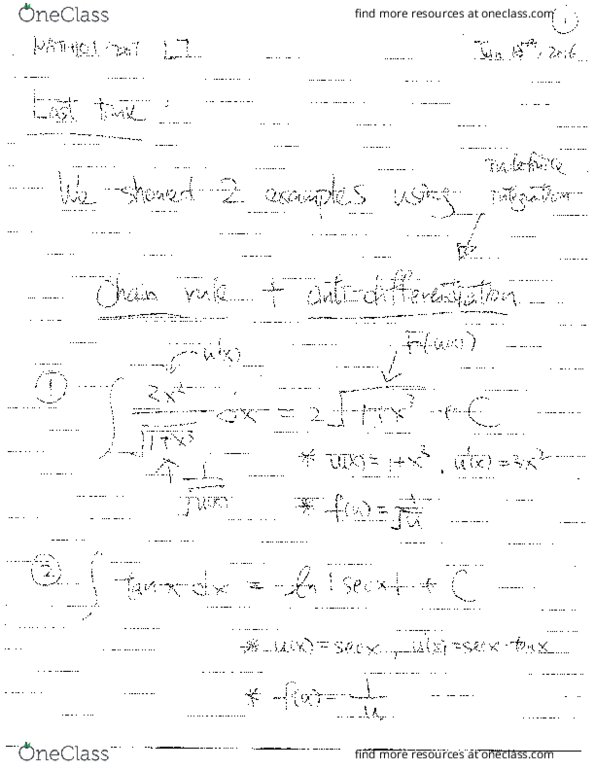 OneClass find more resources at oneclass.com
1
MATH101 201 L7 Jan 18th, 2016
Last time :
We showed 2 examples using indefinite integration
Chain rule + anti-differentiation
u'(x) F(u(x))
① ∫ 2x² / √(1+x³) dx = 2√(1+x³) + C
1/√u(x) * u(x) = 1+x³, u'(x) = 3x²
* f(u) = 1/√u
② ∫ tan x dx = ln|sec x| + C
* u(x) = sec x, u'(x) = sec x · tan x
* f(u) = 1/u
OneClass find more resources at oneclass.com